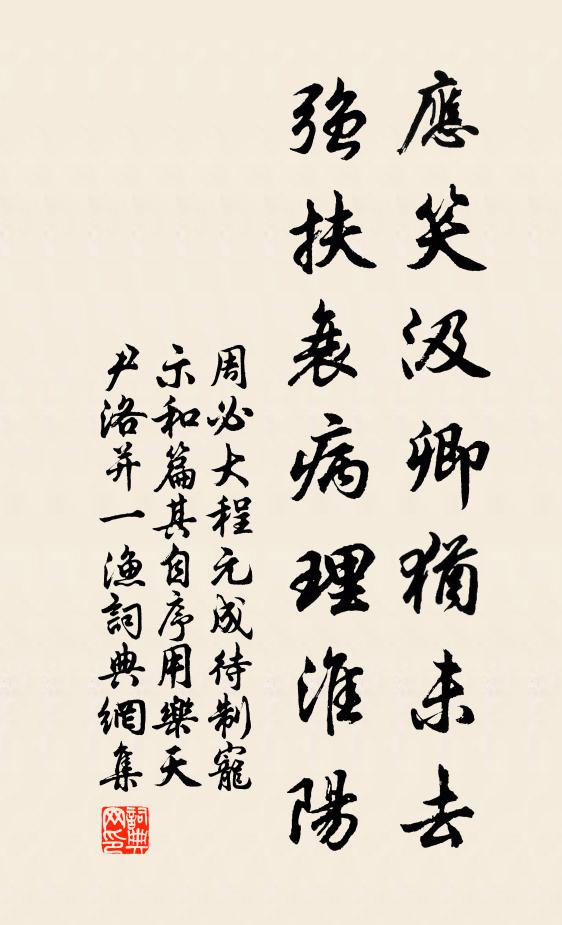 應笑汲卿猶未去
強扶衰病理淮陽
周必大程元成待制寵
示和篇其自序用樂天
尹洛并一漁詞典網集
詞典網印